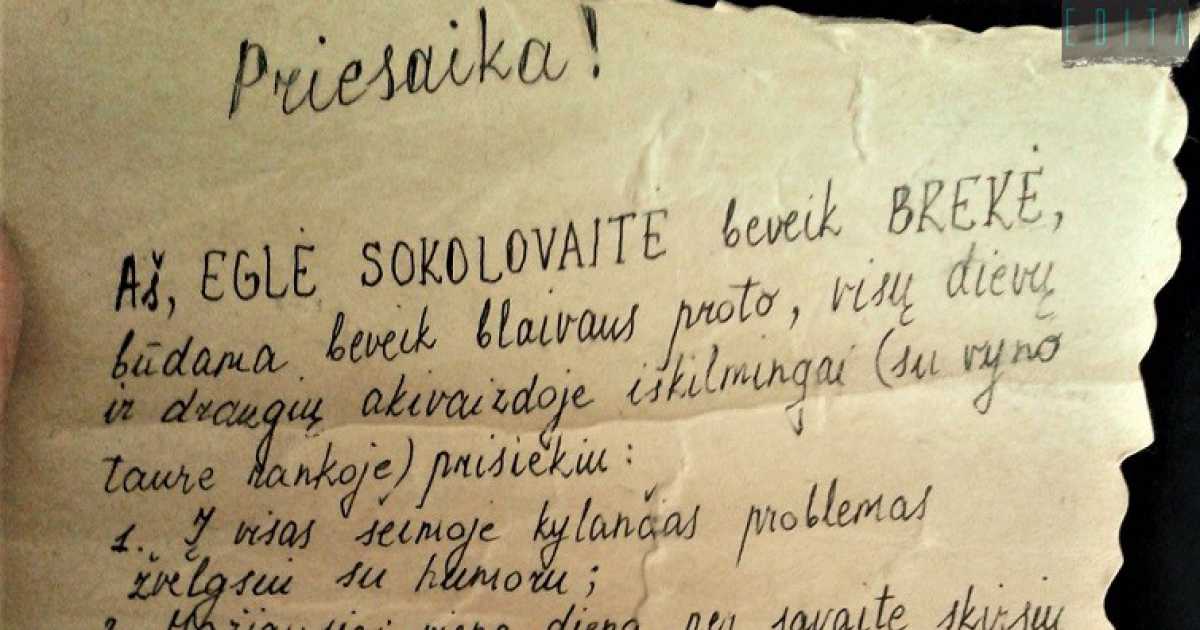 EDITA
Priesaika!
Aš, EGLĖ SOKOLOVAITĖ beveik BREKĖ,
būdama beveik blaivaus proto, visų dievų
ir draugių akivaizdoje iškilmingai (su vyno
taure rankoje) prisiekiu:
1. Į visas šeimoje kylančias problemas
žvelgsiu su humoru;
2. Mažiausiai vieną dieną per savaitę skirsiu